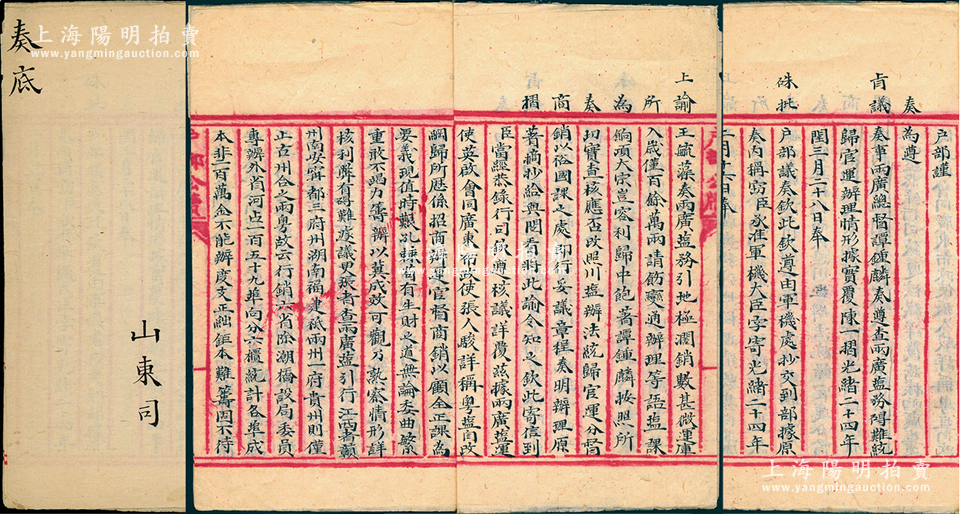 上海陽明拍賣
www.yangmingauction.com
奏底
山東司
戶部謹
奏為遵
旨議奏事兩廣總督譚鍾麟奏遵查兩廣鹽務碍難統
歸官運辦理情形據實覆陳一摺光緒二十四年
閏三月二十八日奉
硃批戶部議奏欽此欽遵由軍機處抄交到部據原
奏內稱竊臣承准軍機大臣字寄光緒二十四年
二月廿四日奉
上諭王毓藻奏兩廣鹽務引地極濶銷數甚微運庫
所入歲僅百餘萬兩請飭變通辦理等語鹽課
為餉項大宗豈容利歸中飽著譚鍾麟按照所
奏切實查核應否改照川鹽辦法統歸官運分督
商銷以裕國課之處即行妥議章程奏明辦理原
摺著摘抄給與閱看將此諭令知之欽此寄信到
臣當經恭錄行司欽遵核議詳覆茲據兩廣鹽運
使英啟會同廣東布政使張人駿詳稱粵鹽自改
綱歸所歷係招商辦運官督商銷以顧全正課為
要義現值時艱孔亟苟有生財之道無論委曲繁
重敢不竭力籌辦以冀成效可觀乃熟察情形詳
核利弊有碍難遽議更張者查兩廣鹽引行江西者贛
州南安寧都三府州湖南福建祗兩州一府貴州則僅
止古州合之兩粵故云行銷六省除潮橋設局委員
專辦外省河占一百五十九埠向分六櫃統計各埠成
本非一百萬金不能辦度支正絀鉅本難籌固不待
上海陽明拍賣
www.yangmingauction.com
上海陽明拍賣
www.yangmingauction.com